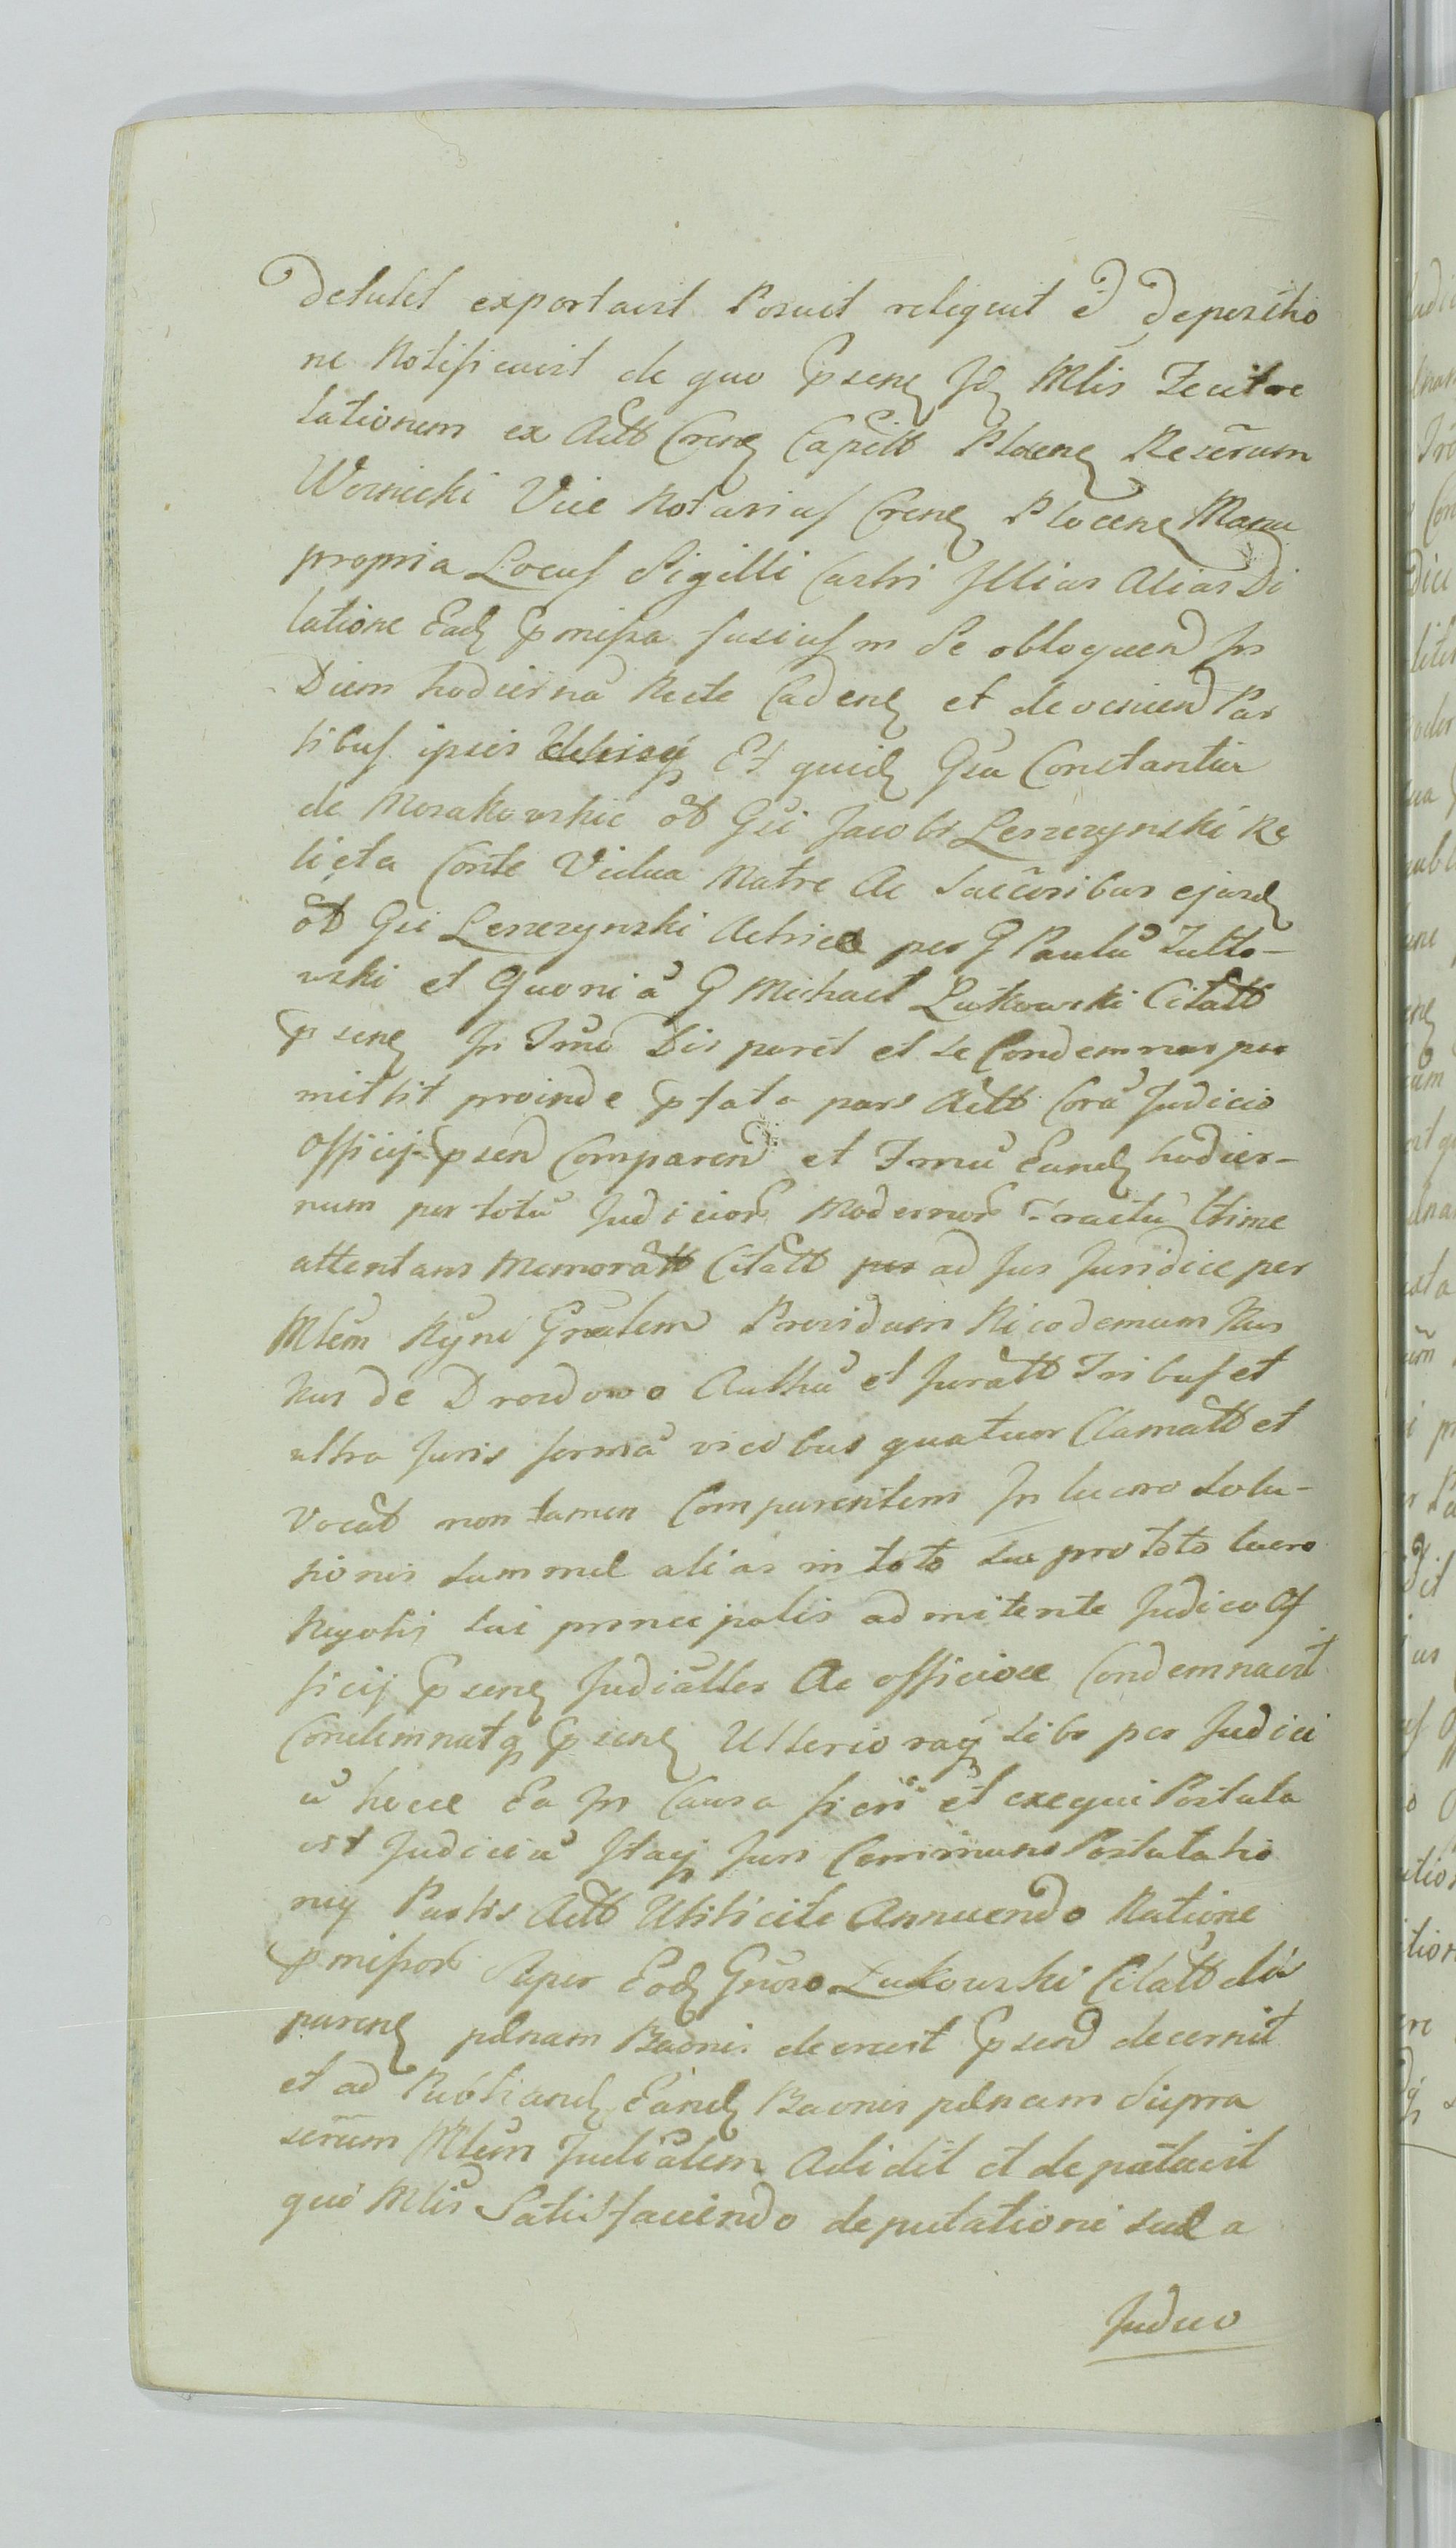 Detulit exportavit Posuit reliquit è Depositio
ne Notificavit de quo Epsenz Jdz Mlis Fecit re
lationem ex Actt Crenz Capitt Plocenz Reseratum
Wornicki Vice Notarius Crenz Plocenz Manu
propria Locus Sigilli Castri Illius Alias Di
latione Eadz Epmissa fusius in Se obloquen In
Diem hodiernā Recte Cadenz et devenien Par
tibus ipsis Et quidz Gsa Constantia
de Morakowskie ōt Gsi Jacobi Leszczynski Re
licta Conte Vidua Matre Ac Succoribus ejusdz
ōt Gsi Leszczynski Actrice per G Paulū Zulto-
wski et Quoniā G Michael Lutkowski Citatt
Epsenz In Tmō Dis paret et se Condemnas per
mittit proinde Epfata pars Actt Corā Judicio
Officij Epsen Comparen et Tmū Eundz hodier-
num per totū Judicior Modernor Tractū Ctime
attentans Memoratt Citatt per ad Jus Juridice per
Mlem Rgni Gnalem Providum Nicodemum Kus
kus de Drozdowo Authū et Juratt Tribus et
ultra Juris formā vicibus quatuor Clamatt et
vocat non tamen Comparentem In lucro solu-
tionis summae alias in toto sui pro toto lucro
Negotij sui principalis admitente Judicio Of
ficij Epsenz Judicialler Ac officiose Condemnavit
Condemnatq Epsenz Ulterioraq sibi per Judici
ū hocce Ea In Causa fieri et exequi Postula
vit Judiciū Itaq Juri Communi Postulatio
niq Partis Actt Utilicite Annuendo Ratione
Epmissor Super Eodz Gnoso Lutkowski Citatt dis
parenz plnam Baonis decrevit Epsen decernit
et ad Publicandz Eandz Baonis plnam supra
scrum Mlem Judialem Adidit et deputavit
qui Mlis Satisfaciendo deputationi suae a
Judicio